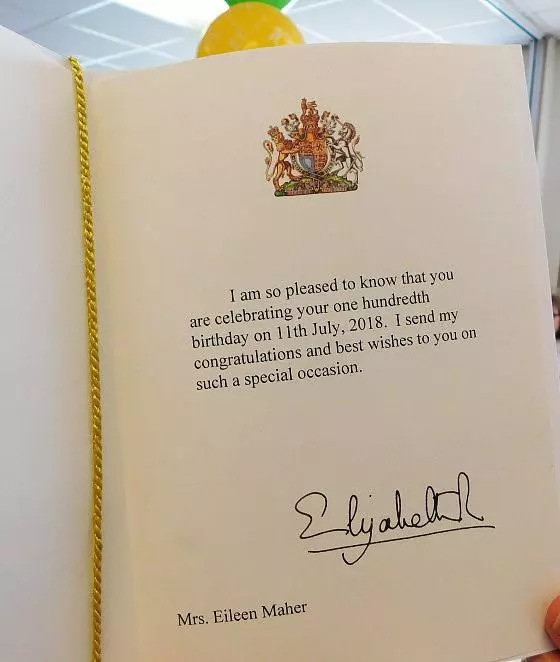 I am so pleased to know that you
are celebrating your one hundredth
birthday on 11th July, 2018. I send my
congratulations and best wishes to you on
such a special occasion.
Elizabeth R
Mrs. Eileen Maher